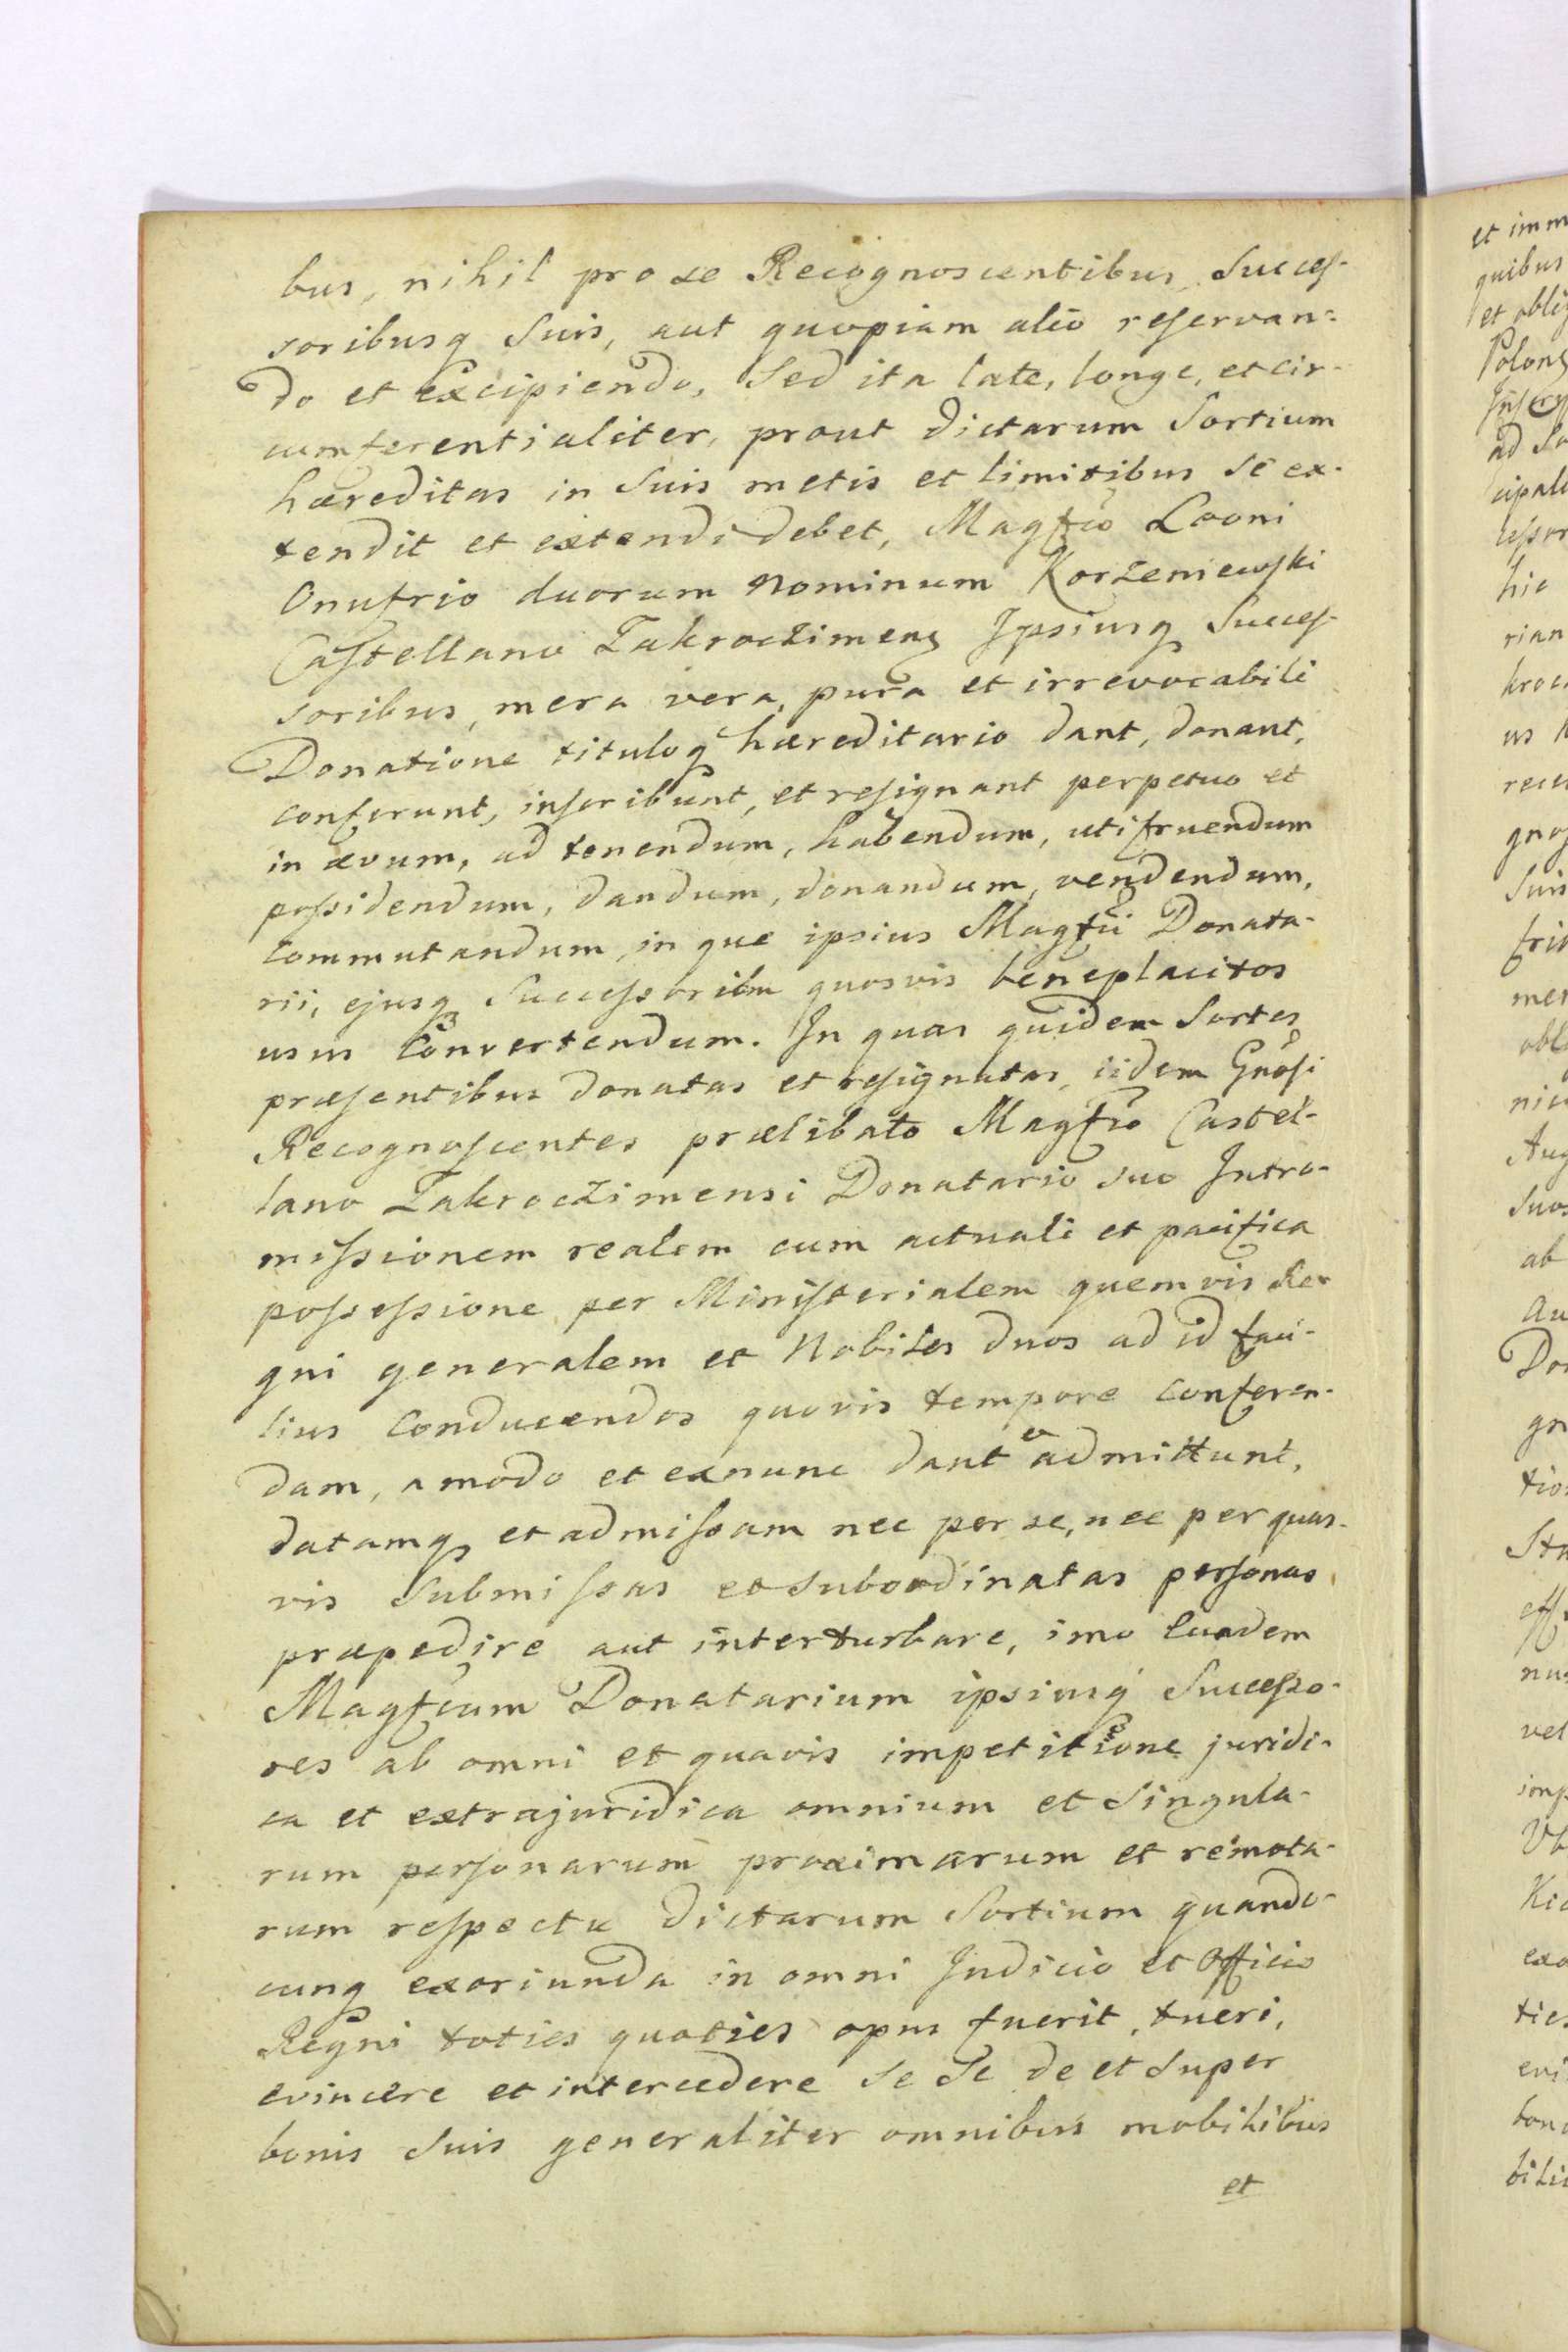 bus, nihil pro se Recognoscentibus, Succes-
soribusq Suis, aut quopiam alio reservan=
do et excipiendo, Sed ita late, longe, et cir-
cumferentialiter, prout dictarum Sortium
hæreditas in Suis metis et limitibus se ex-
tendit et extendi debet, Magfco Leoni
Onufrio duorum nominum Korzeniewski
Castellano Zakroczimens Ipsiusq Succes-
soribus, mera vera, pura et irrevocabili
Donatione tituloq hæreditario dant, donant,
conferunt, inscribunt, et resignant perpetuo et
in ævum, ad tenendum, habendum, utifruendum
possidendum, dandum, donandum, vendendum,
commutandum, in que ipsius Magfci Donata-
rii, ejusq Successoribm quosvis beneplacitos
usus Convertendum. In quas quidem Sortes
præsentibus donatas et resignatas, iidem Gnosi
Recognoscentes prælibato Magfco Castel-
lano Zakroczimensi Donatario suo Intro-
missionem realem cum actuali et pacifica
possessione per Ministerialem quemvis Re-
gni generalem et Nobiles duos ad id faci-
lius Conducendos quovis tempore conferen-
dam, amodo et exnunc dant et admittunt,
datamq et admissam nec per se, nec per quas-
vis Submissas et Subordinatas personas
præpedire aut interturbare, imo Eundem
Magfcum Donatarium ipsiusq Successo-
res ab omni et quavis impetitione juridi-
ca et extrajuridica omnium et Singula-
rum personarum proximarum et remota-
rum respectu dictarum Sortium quando-
cunq exoriunda in omni Judicio et Officio
Regni toties quoties opus fuerit, tueri,
evincere et intercedere Se Se de et Super
bonis Suis generaliter omnibus mobilibus
et